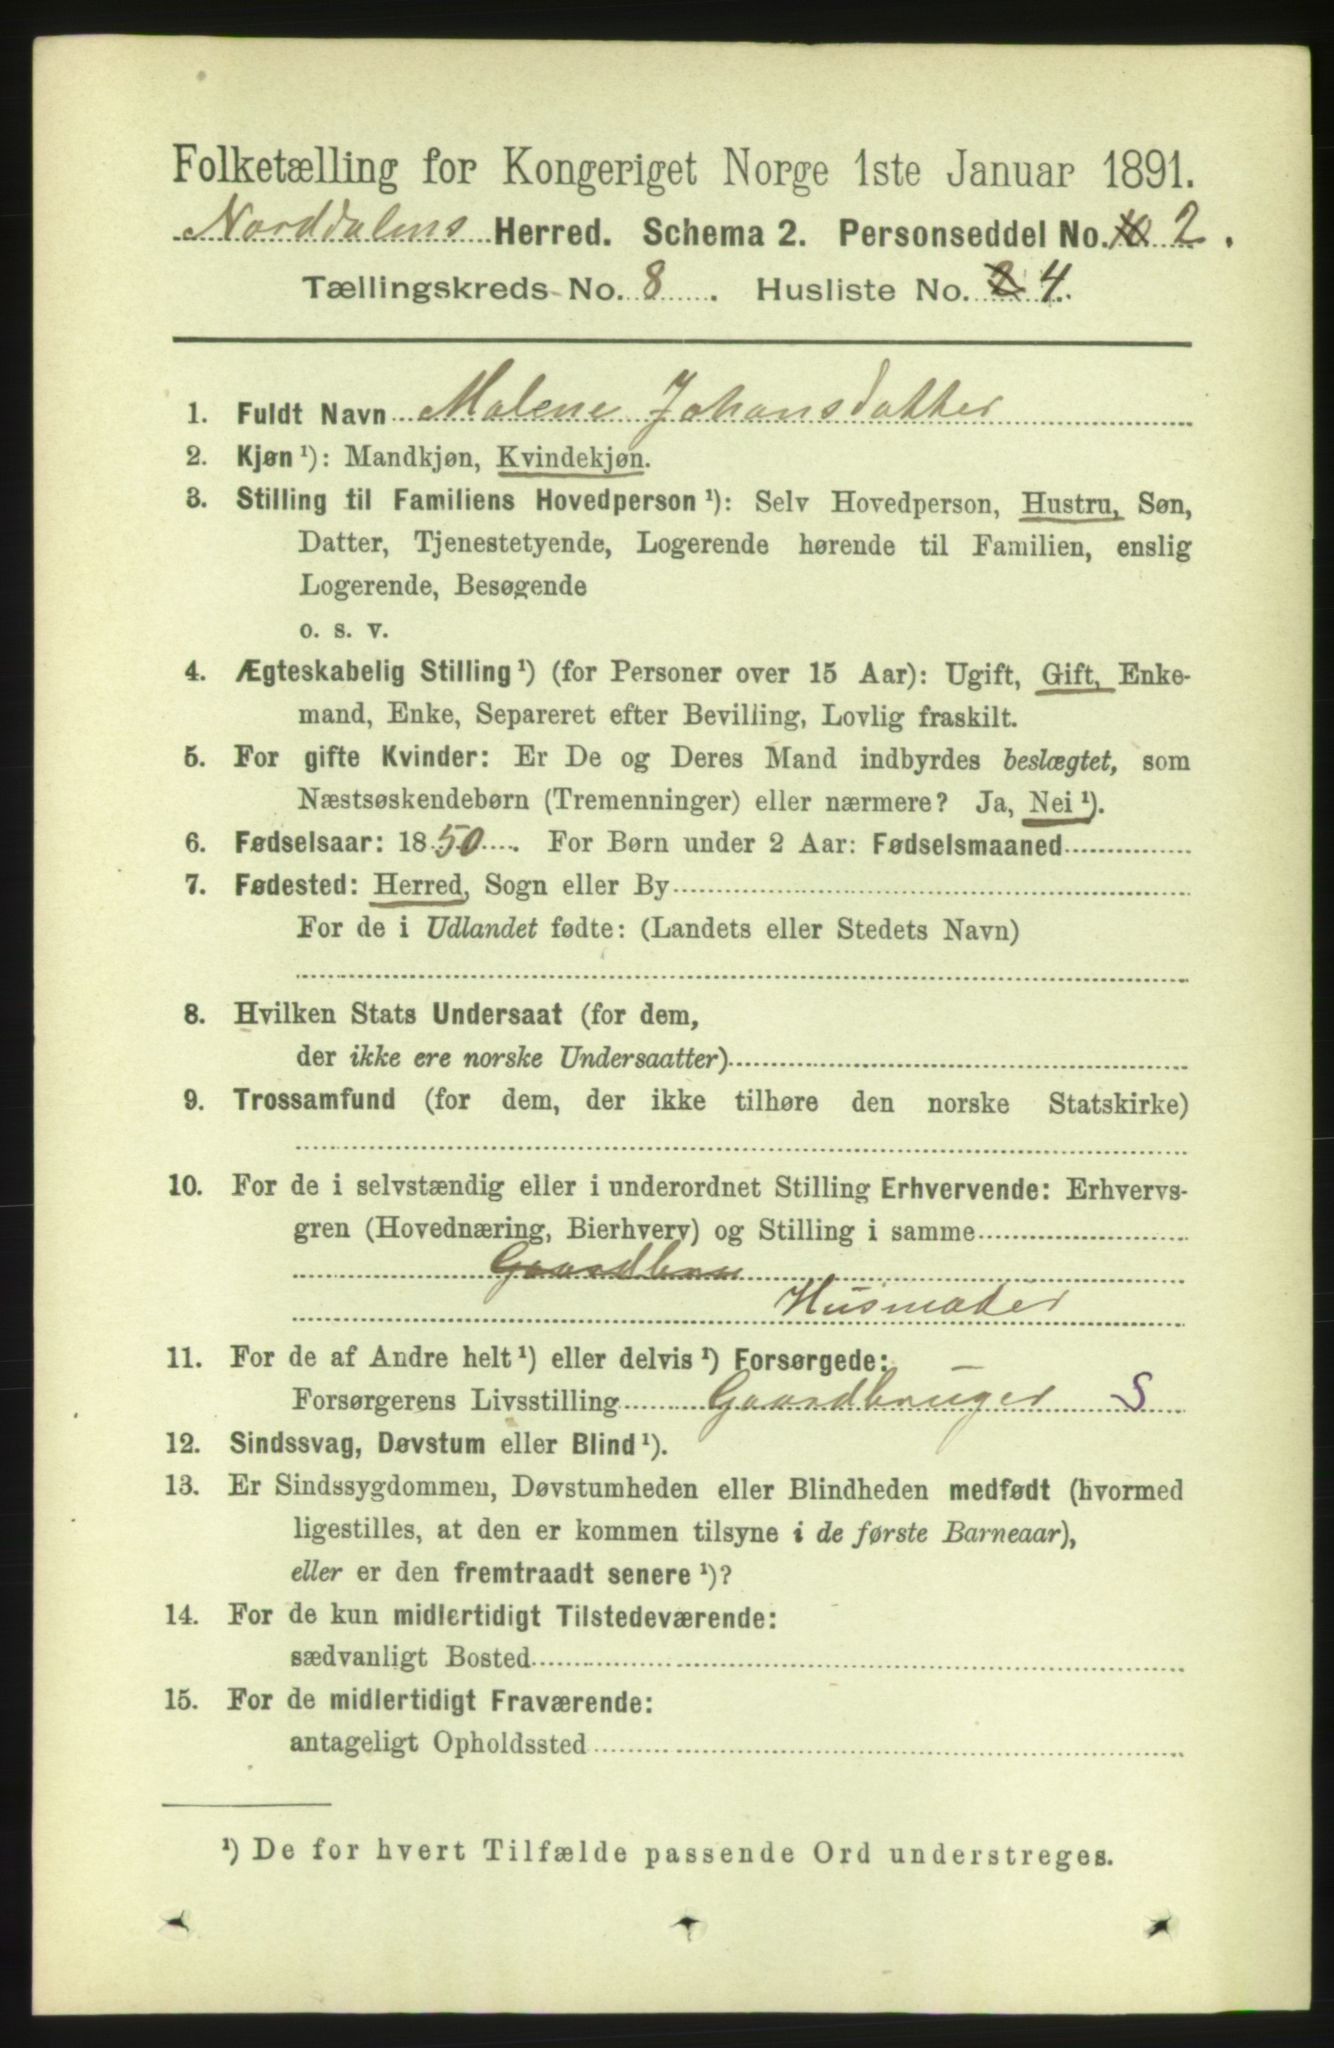 Folketælling for Kongeriget Norge 1ste Januar 1891.
Norddalens Herred. Schema 2. Personseddel No. 10 2.
Tællingskreds No. 8. Husliste No. 2 4.
1. Fuldt Navn Malene Johansdatter
2. Kjøn ¹): Mandkjøn, Kvindekjøn.
3. Stilling til Familiens Hovedperson ¹): Selv Hovedperson, Hustru, Søn,
Datter, Tjenestetyende, Logerende hørende til Familien, enslig
Logerende, Besøgende
o. s. v.
4. Ægteskabelig Stilling ¹) (for Personer over 15 Aar): Ugift, Gift, Enke-
mand, Enke, Separeret efter Bevilling, Lovlig fraskilt.
5. For gifte Kvinder: Er De og Deres Mand indbyrdes beslægtet, som
Næstsøskendebørn (Tremenninger) eller nærmere? Ja, Nei ¹).
6. Fødselsaar: 1850. For Børn under 2 Aar: Fødselsmaaned
7. Fødested: Herred, Sogn eller By
For de i Udlandet fødte: (Landets eller Stedets Navn)
8. Hvilken Stats Undersaat (for dem,
der ikke ere norske Undersaatter)
9. Trossamfund (for dem, der ikke tilhøre den norske Statskirke)
10. For de i selvstændig eller i underordnet Stilling Erhvervende: Erhvervs-
gren (Hovednæring, Bierhverv) og Stilling i samme
Gaardbru
Husmoder
11. For de af Andre helt ¹) eller delvis ¹) Forsørgede:
Forsørgerens Livsstilling Gaardbruger S
12. Sindssvag, Døvstum eller Blind ¹).
13. Er Sindssygdommen, Døvstumheden eller Blindheden medfødt (hvormed
ligestilles, at den er kommen tilsyne i de første Barneaar),
eller er den fremtraadt senere ¹)?
14. For de kun midlertidigt Tilstedeværende:
sædvanligt Bosted
15. For de midlertidigt Fraværende:
antageligt Opholdssted
¹) De for hvert Tilfælde passende Ord understreges.